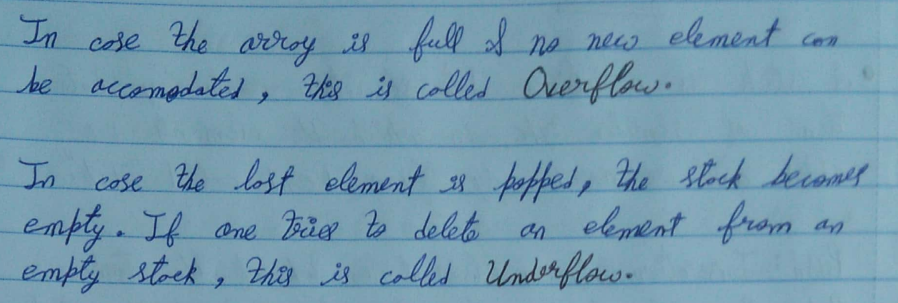 In case the array is full & no new element can
be accomodated, this is called Overflow.
In case the last element is popped, the stack becomes
empty. If one tries to delete an element from an
empty stack, this is called Underflow.